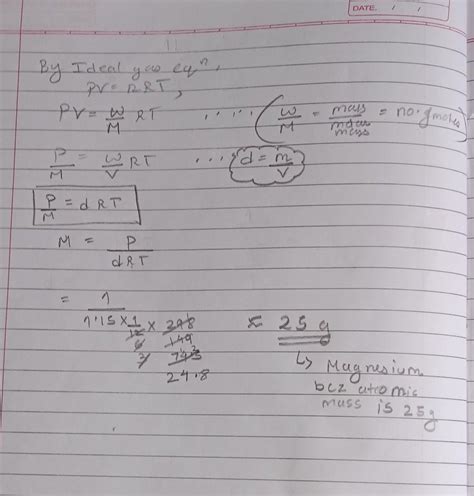 DATE: / /
By Ideal gas eqⁿ,
PV = nRT,
PV = w/M RT ..... ( w/M = mass/molar mass = no. of moles )
P/M = w/V RT ... d = m/V
P/M = dRT
M = P/dRT
= 1/1.15 × 1/12 × 298 ≈ 25 g
6 149
3 74.5
24.8
↳ Magnesium
bcz atomic
mass is 25g